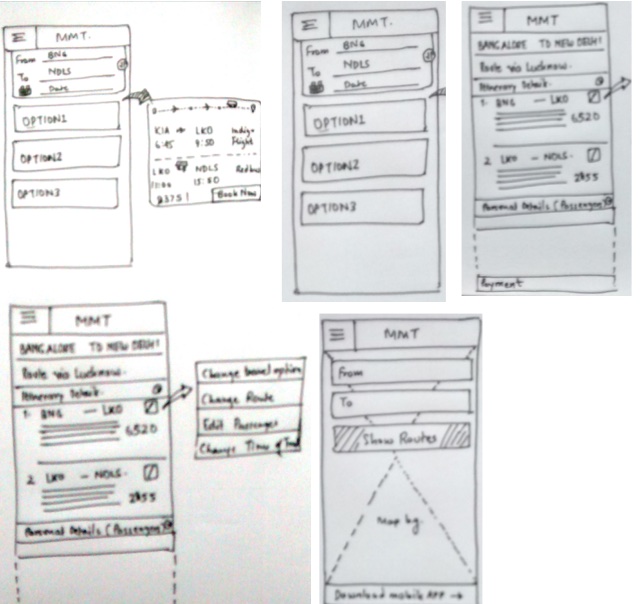 MMT.
From BNG
To NDLS
Date
OPTION1
OPTION2
OPTION3
KIA LKO Indigo
6:45 9:50 Flight
LKO NDLS Redbus
15:50
Book Now
MMT.
From BNG
To NDLS
Date
OPTION1
OPTION2
OPTION3
MMT
BANGALORE TO NEW DELHI
Route via Lucknow.
Itinerary Detail.
1. BNG — LKO
6520
2 LKO – NDLS.
2855
Personal Details (Passenger)
Payment
MMT
BANGALORE TO NEW DELHI
Route via Lucknow.
Itinerary Detail.
1. BNG — LKO
6520
2 LKO – NDLS.
2855
Personal Details (Passenger)
Change travel option
Change Route
Edit Passenger
Change Time of
MMT
From
To
Show Routes
Map bg.
Download mobile APP →